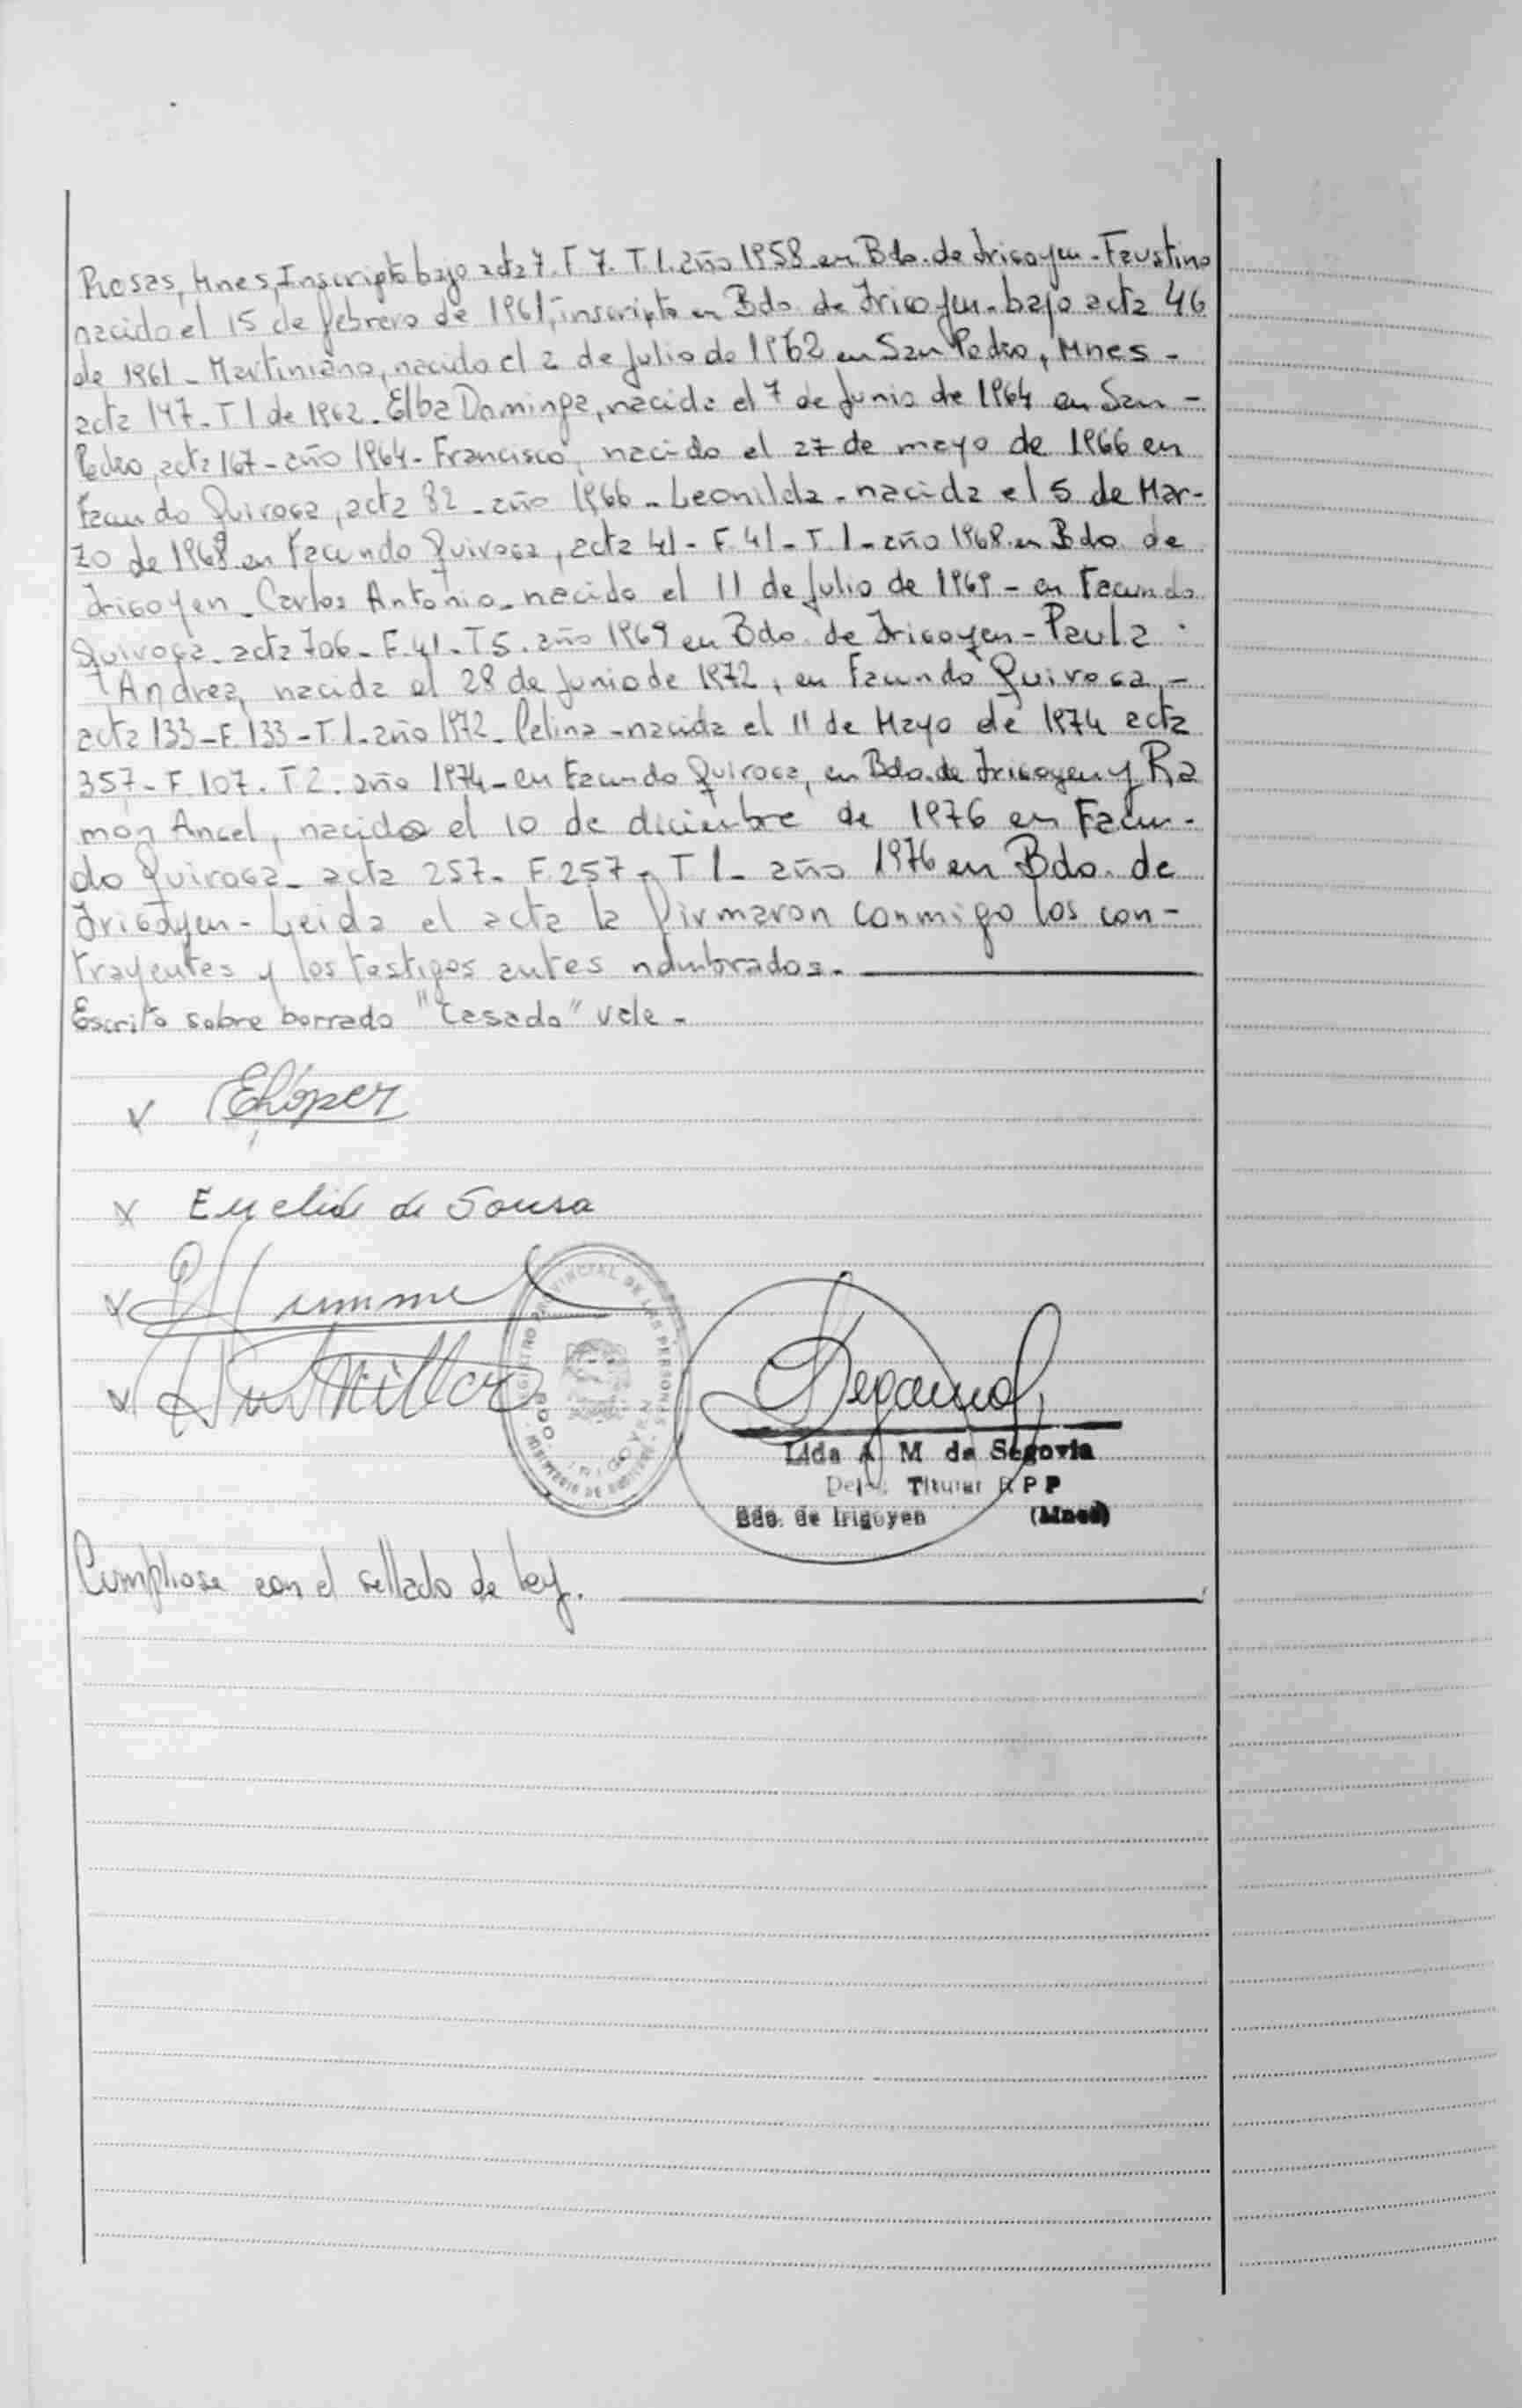 Rosas, Mnes, Inscripto bajo acta 7. F 7. T. 1. año 1958 en Bdo. de Irigoyen - Faustino
nacido el 15 de febrero de 1961, inscripto en Bdo. de Irigoyen - bajo acta 46
de 1961 - Martiniano, nacido el 2 de Julio de 1962 en San Pedro, Mnes -
acta 147 - T 1 de 1962 - Elba Dominga, nacida el 7 de Junio de 1964 en San -
Pedro, acta 167 - año 1964 - Francisco, nacido el 27 de mayo de 1966 en
Facundo Quiroga, acta 82 - año 1966 - Leonilda - nacida el 5 de Mar-
zo de 1968 en Facundo Quiroga, acta 41 - F. 41 - T. 1 - año 1968 en Bdo. de
Irigoyen - Carlos Antonio - nacido el 11 de Julio de 1969 - en Facundo
Quiroga - acta 706 - F. 41 - T 5. año 1969 en Bdo. de Irigoyen - Paula
Andrea, nacida el 28 de Junio de 1972, en Facundo Quiroga, -
acta 133 - F. 133 - T. 1 - año 1972 - Celina - nacida el 11 de Mayo de 1974 acta
357 - F. 107. T 2. año 1974 - en Facundo Quiroga, en Bdo. de Irigoyen y Ra
mon Angel, nacido el 10 de diciembre de 1976 en Facun-
do Quiroga - acta 257 - F. 257 - T 1 - año 1976 en Bdo. de
Irigoyen - Leida el acta la firmaron conmigo los con-
trayentes y los testigos antes nombrados. -
Escrito sobre borrado "Casado" vale -
ELópez
Euclide de Sousa
REGISTRO PROVINCIAL DE LAS PERSONAS
BDO. IRIGOYEN
MINISTERIO DE GOBIERNO
Lida A M de Segovia
Deleg. Titular R P P
Bdo. de Irigoyen (Mnes)
Cumpliose con el sellado de ley.